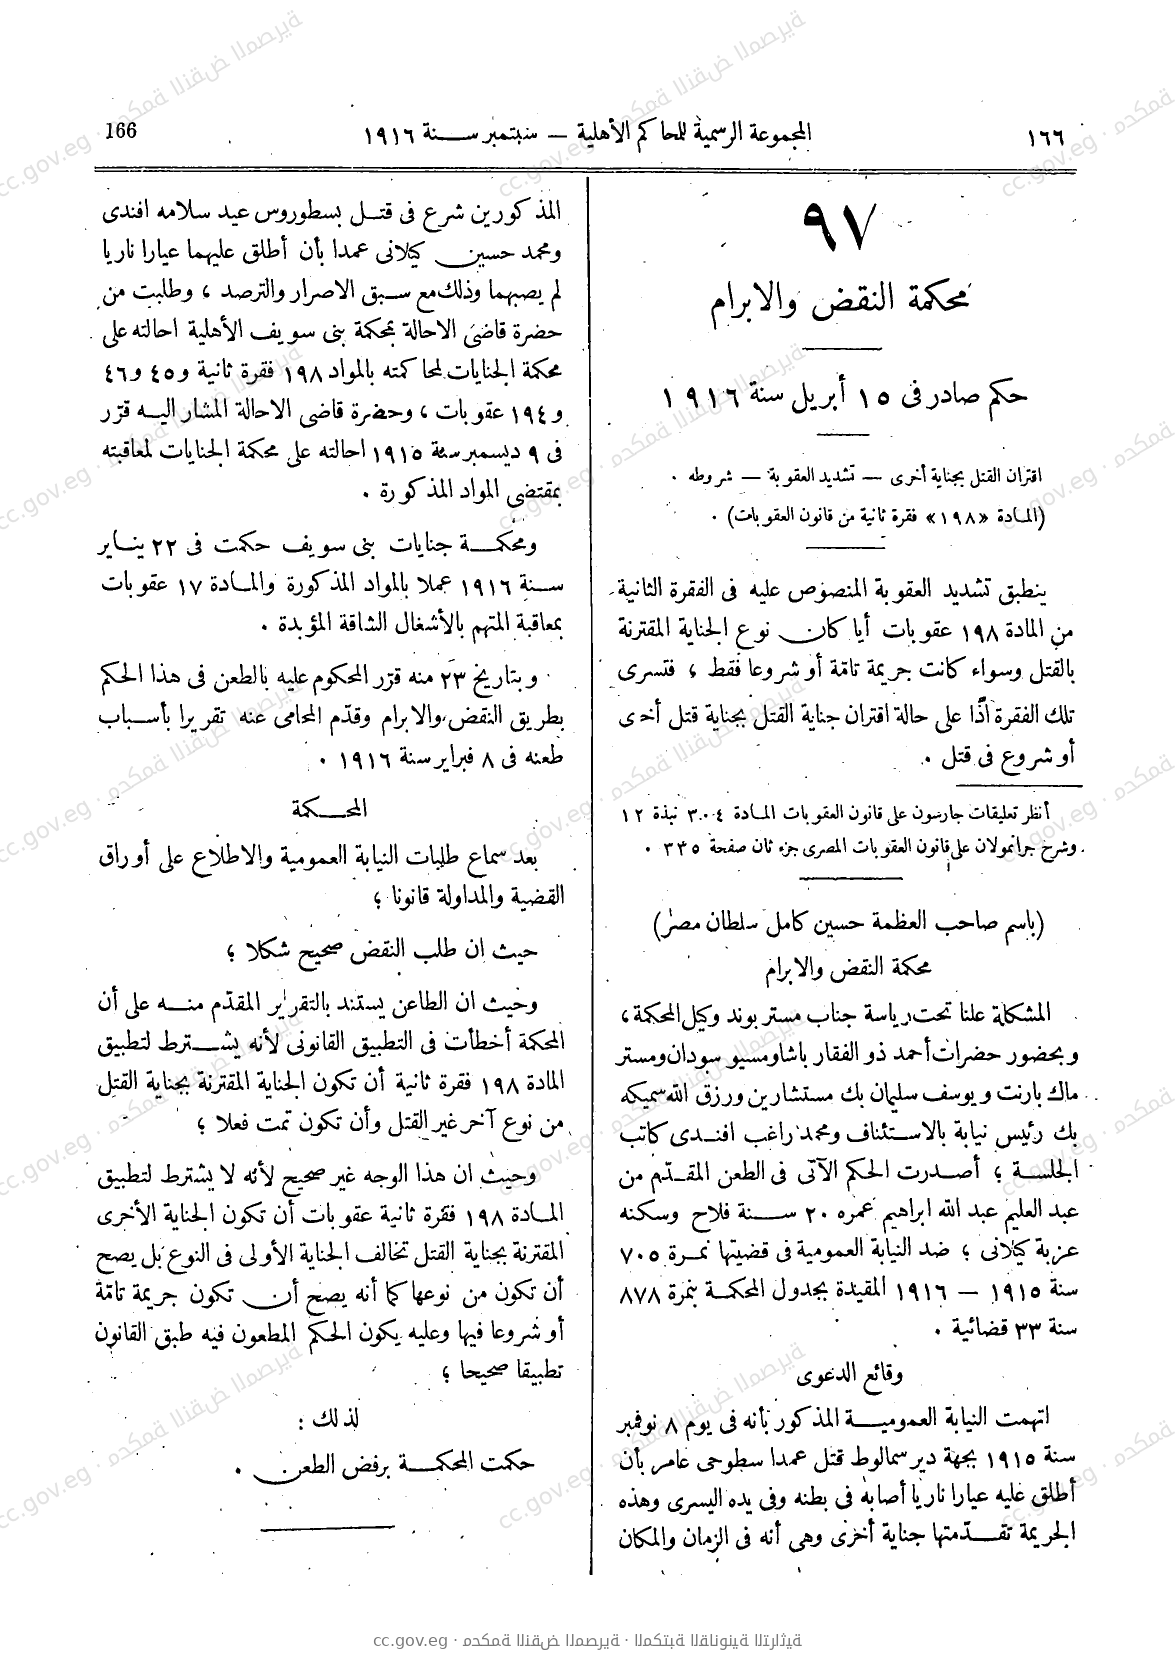 ١٦٦
المجموعة الرسمية للمحاكم الأهلية — سبتمبر سنة ١٩١٦
166
٩٧
محكمة النقض والابرام
حكم صادر فى ١٥ أبريل سنة ١٩١٦
اقتران القتل بجناية أخرى — تشديد العقوبة — شروطه .
(المادة «١٩٨» فقرة ثانية من قانون العقوبات) .
ينطبق تشديد العقوبة المنصوص عليه فى الفقرة الثانية
من المادة ١٩٨ عقوبات أيا كان نوع الجناية المقترنة
بالقتل وسواء كانت جريمة تامّة أو شروعا فقط ، فتسرى
تلك الفقرة اذًا على حالة اقتران جناية القتل بجناية قتل أخرى
أو شروع فى قتل .
أنظر تعليقات جارسون على قانون العقوبات المادة ٣٠٤ نبذة ١٢
وشرح جرانمولان على قانون العقوبات المصرى جزء ثان صفحة ٣٣٥ .
(باسم صاحب العظمة حسين كامل سلطان مصر)
محكمة النقض والابرام
المشكلة علنا تحت رياسة جناب مستر بوند وكيل المحكمة ،
وبحضور حضرات أحمد ذو الفقار باشا ومسيو سودان ومستر
ماك بارنت ويوسف سليمان بك مستشارين ورزق الله سميكه
بك رئيس نيابة بالاستئناف ومحمد راغب افندى كاتب
الجلسة ؛ أصدرت الحكم الآتى فى الطعن المقدّم من
عبد العليم عبد الله ابراهيم عمره ٢٠ سنة فلاح وسكنه
عزبة كيلانى ؛ ضد النيابة العمومية فى قضيتها نمرة ٧٠٥
سنة ١٩١٥ — ١٩١٦ المقيدة بجدول المحكمة بنمرة ٨٧٨
سنة ٣٣ قضائية .
وقائع الدعوى
اتهمت النيابة العمومية المذكور بأنه فى يوم ٨ نوفمبر
سنة ١٩١٥ بجهة دير سمالوط قتل عمدا سطوحى عامر بأن
أطلق عليه عيارا ناريا أصابه فى بطنه وفى يده اليسرى وهذه
الجريمة تقدّمتها جناية أخرى وهى أنه فى الزمان والمكان
المذكورين شرع فى قتل بسطوروس عيد سلامه افندى
ومحمد حسين كيلانى عمدا بأن أطلق عليهما عيارا ناريا
لم يصبهما وذلك مع سبق الاصرار والترصد ، وطلبت من
حضرة قاضى الاحالة بمحكمة بنى سويف الأهلية احالته على
محكمة الجنايات لمحاكمته بالمواد ١٩٨ فقرة ثانية و٤٥ و٤٦
و١٩٤ عقوبات ، وحضرة قاضى الاحالة المشار اليه قرّر
فى ٩ ديسمبر سنة ١٩١٥ احالته على محكمة الجنايات لمعاقبته
بمقتضى المواد المذكورة .
ومحكمة جنايات بنى سويف حكمت فى ٢٢ يناير
سنة ١٩١٦ عملا بالمواد المذكورة والمادة ١٧ عقوبات
بمعاقبة المتهم بالأشغال الشاقة المؤبدة .
وبتاريخ ٢٣ منه قرّر المحكوم عليه بالطعن فى هذا الحكم
بطريق النقض والابرام وقدّم المحامى عنه تقريرا بأسباب
طعنه فى ٨ فبراير سنة ١٩١٦ .
المحكمة
بعد سماع طلبات النيابة العمومية والاطلاع على أوراق
القضية والمداولة قانونا ؛
حيث ان طلب النقض صحيح شكلا ؛
وحيث ان الطاعن يستند بالتقرير المقدّم منه على أن
المحكمة أخطأت فى التطبيق القانونى لأنه يشترط لتطبيق
المادة ١٩٨ فقرة ثانية أن تكون الجناية المقترنة بجناية القتل
من نوع آخر غير القتل وأن تكون تمت فعلا ؛
وحيث ان هذا الوجه غير صحيح لأنه لا يشترط لتطبيق
المادة ١٩٨ فقرة ثانية عقوبات أن تكون الجناية الأخرى
المقترنة بجناية القتل تخالف الجناية الأولى فى النوع بل يصح
أن تكون من نوعها كما أنه يصح أن تكون جريمة تامّة
أو شروعا فيها وعليه يكون الحكم المطعون فيه طبق القانون
تطبيقا صحيحا ؛
لذلك :
حكمت المحكمة برفض الطعن .
cc.gov.eg · محكمة النقض المصرية · المكتبة القانونية التراثية